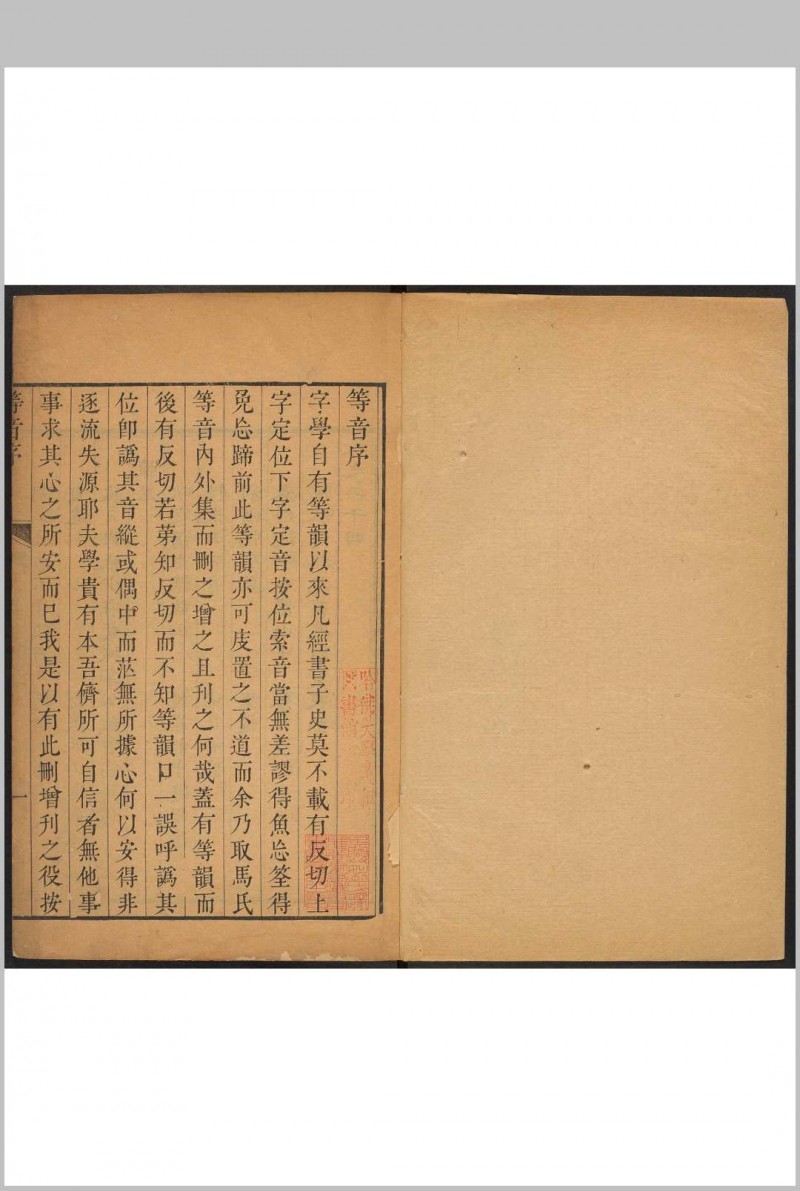 等音序
字學自有等韻以來凡經書子史莫不載有反切上
字定位下字定音按位索音當無差謬得魚忘筌得
兔忘蹄前此等韻亦可庋置之不道而余乃取馬氏
等音內外集而刪之增之且刋之何哉蓋有等韻而
後有反切若苐知反切而不知等韻口一誤呼譌其
位卽譌其音縱或偶中而茫無所據心何以安得非
逐流失源耶夫學貴有本吾儕所可自信者無他事
事求其心之所安而已我是以有此刪增刋之役按
等音序
一